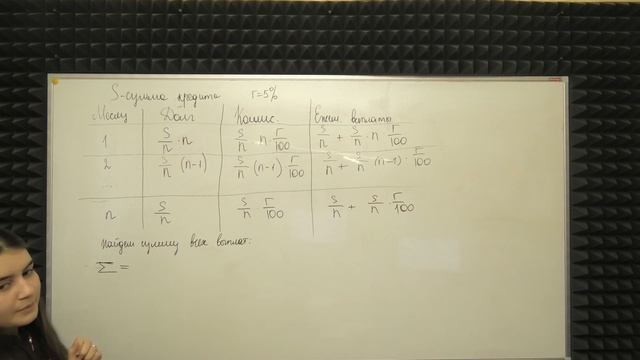 S-сумма кредита r=5%
Месяц Долг Комис. Ежем. выплата
1 S/n · n S/n · n · r/100 S/n + S/n · n · r/100
2 S/n (n-1) S/n (n-1) · r/100 S/n + S/n (n-1) · r/100
...
n S/n S/n · r/100 S/n + S/n · r/100
Найдем сумму всех выплат:
Σ =